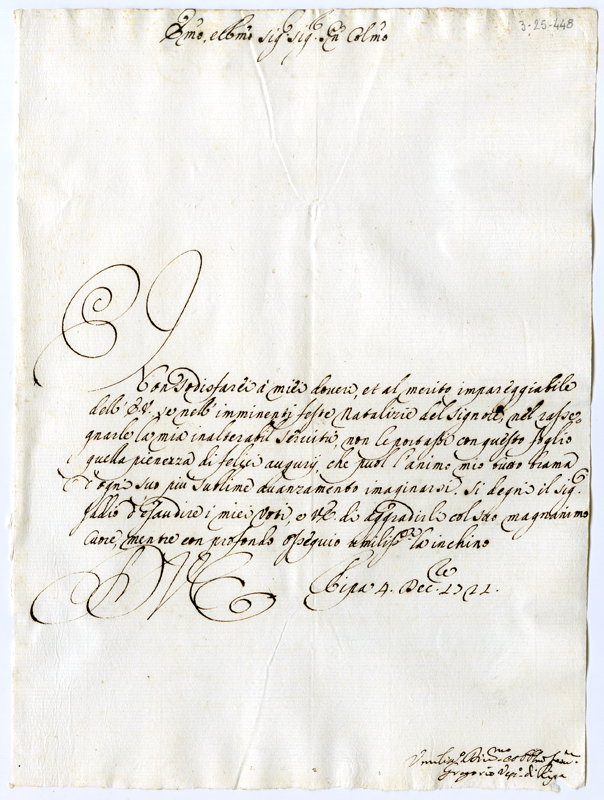 3-25-448
Emo, e Rmo Sigr Sigr Pñ Colmo
Non sodisfarei à miei dovere, et al merito impareggiabile
dell' E.V. se nell' imminenti feste Natalizie del Signore, nel rasse-
gnarle la mia inalterabil servitù, non le portassi con questo foglio
quella pienezza di felici augurij, che puol l'animo mio tutto brama
d'ogni suo più sublime avanzamento imaginarsi. Si degni il Sigr
Iddio d'esaudire i miei voti, e V.E. di aggradirle col suo magnanimo
Cuore, mentre con profondo ossequio umilisste la inchino
D V E
Ripa 4. Dec.
Gregorio Vesc. di Ripa